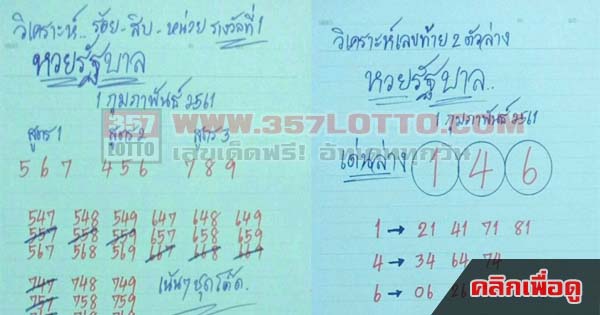 วิเคราะห์.. ร้อย-สิบ-หน่วย รางวัลที่ 1
หวยรัฐบาล
1 กุมภาพันธ์ 2561
สูตร 1 สูตร 2 สูตร 3
5 6 7 4 5 6 7 8 9
547 548 549 647 648 649
557 558 559 657 658 659
567 568 569 667 668 669
747 748 749
757 758 759
เน้นๆชุดโต๊ด.
วิเคราะห์เลขท้าย 2 ตัวล่าง
หวยรัฐบาล..
1 กุมภาพันธ์ 2561
เด่นล่าง 1 4 6
1 → 21 41 71 81
4 → 34 64 74
6 → 06 26
357 LOTTO WWW.357LOTTO.COM
เลขเด็ดฟรี! อัพเดททุกวัน
คลิกเพื่อดู